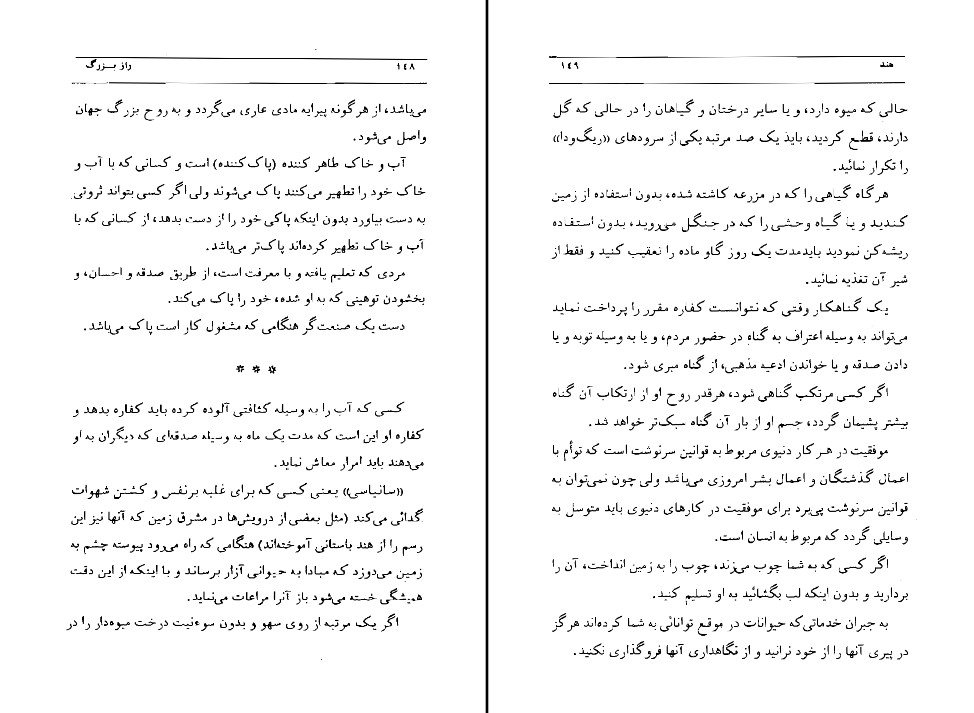 ۱۴۸ راز بزرگ
می‌باشد، از هرگونه پیرایه مادی عاری می‌گردد و به روح بزرگ جهان
واصل می‌شود.
آب و خاک طاهر کننده (پاک‌کننده) است و کسانی که با آب و
خاک خود را تطهیر می‌کنند پاک می‌شوند ولی اگر کسی بتواند ثروتی
به دست بیاورد بدون اینکه پاکی خود را از دست بدهد، از کسانی که با
آب و خاک تطهیر کرده‌اند پاک‌تر می‌باشد.
مردی که تعلیم یافته و با معرفت است، از طریق صدقه و احسان، و
بخشودن توهینی که به او شده، خود را پاک می‌کند.
دست یک صنعت‌گر هنگامی که مشغول کار است پاک می‌باشد.
* * *
کسی که آب را به وسیله کثافتی آلوده کرده باید کفاره بدهد و
کفاره او این است که مدت یک ماه به وسیله صدقه‌ای که دیگران به او
می‌دهند باید امرار معاش نماید.
«سانیاسی» یعنی کسی که برای غلبه برنفس و کشتن شهوات
گدائی می‌کند (مثل بعضی از درویش‌ها در مشرق زمین که آنها نیز این
رسم را از هند باستانی آموخته‌اند) هنگامی که راه می‌رود پیوسته چشم به
زمین می‌دوزد که مبادا به حیوانی آزار برساند و با اینکه از این دقت
همیشگی خسته می‌شود باز آنرا مراعات می‌نماید.
اگر یک مرتبه از روی سهو و بدون سوءنیت درخت میوه‌دار را در
هند ۱۴۹
حالی که میوه دارد، و یا سایر درختان و گیاهان را در حالی که گل
دارند، قطع کردید، باید یک صد مرتبه یکی از سرودهای «ریگ‌ودا»
را تکرار نمائید.
هرگاه گیاهی را که در مزرعه کاشته شده، بدون استفاده از زمین
کندید و یا گیاه وحشی را که در جنگل می‌روید، بدون استفاده
ریشه‌کن نمودید باید مدت یک روز گاو ماده را تعقیب کنید و فقط از
شیر آن تغذیه نمائید.
یک گناهکار وقتی که نتوانست کفاره مقرر را پرداخت نماید
می‌تواند به وسیله اعتراف به گناه در حضور مردم، و یا به وسیله توبه و یا
دادن صدقه و یا خواندن ادعیه مذهبی، از گناه مبری شود.
اگر کسی مرتکب گناهی شود، هرقدر روح او از ارتکاب آن گناه
بیشتر پشیمان گردد، جسم او از بار آن گناه سبک‌تر خواهد شد.
موفقیت در هر کار دنیوی مربوط به قوانین سرنوشت است که توأم با
اعمال گذشتگان و اعمال بشر امروزی می‌باشد ولی چون نمی‌توان به
قوانین سرنوشت پی‌برد برای موفقیت در کارهای دنیوی باید متوسل به
وسایلی گردد که مربوط به انسان است.
اگر کسی که به شما چوب می‌زند، چوب را به زمین انداخت، آن را
بردارید و بدون اینکه لب بگشائید به او تسلیم کنید.
به جبران خدماتی‌که حیوانات در موقع توانائی به شما کرده‌اند هرگز
در پیری آنها را از خود نرانید و از نگاهداری آنها فروگذاری نکنید.